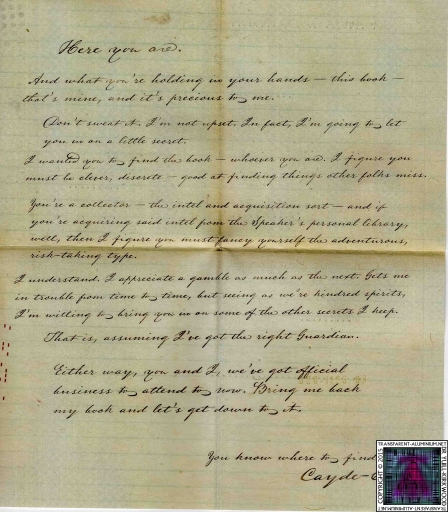 Here you are.
And what you're holding in your hands – this book –
that's mine, and it's precious to me.
Don't sweat it. I'm not upset. In fact, I'm going to let
you in on a little secret.
I wanted you to find the book – whoever you are. I figure you
must be clever, discrete – good at finding things other folks miss.
You're a collector – the intel and acquisition sort – and if
you're acquiring said intel from the Speaker's personal library,
well, then I figure you must fancy yourself the adventurous,
risk-taking type.
I understand. I appreciate a gamble as much as the next. Gets me
in trouble from time to time, but seeing as we're kindred spirits,
I'm willing to bring you in on some of the other secrets I keep.
That is, assuming I've got the right Guardian.
Either way, you and I, we've got official
business to attend to now. Bring me back
my book and let's get down to it.
You know where to find
Cayde-
TRANSPARENT-ALUMINIUM.NET
COPYRIGHT © 2015
TRANSPARENT-ALUMINIUM.NET